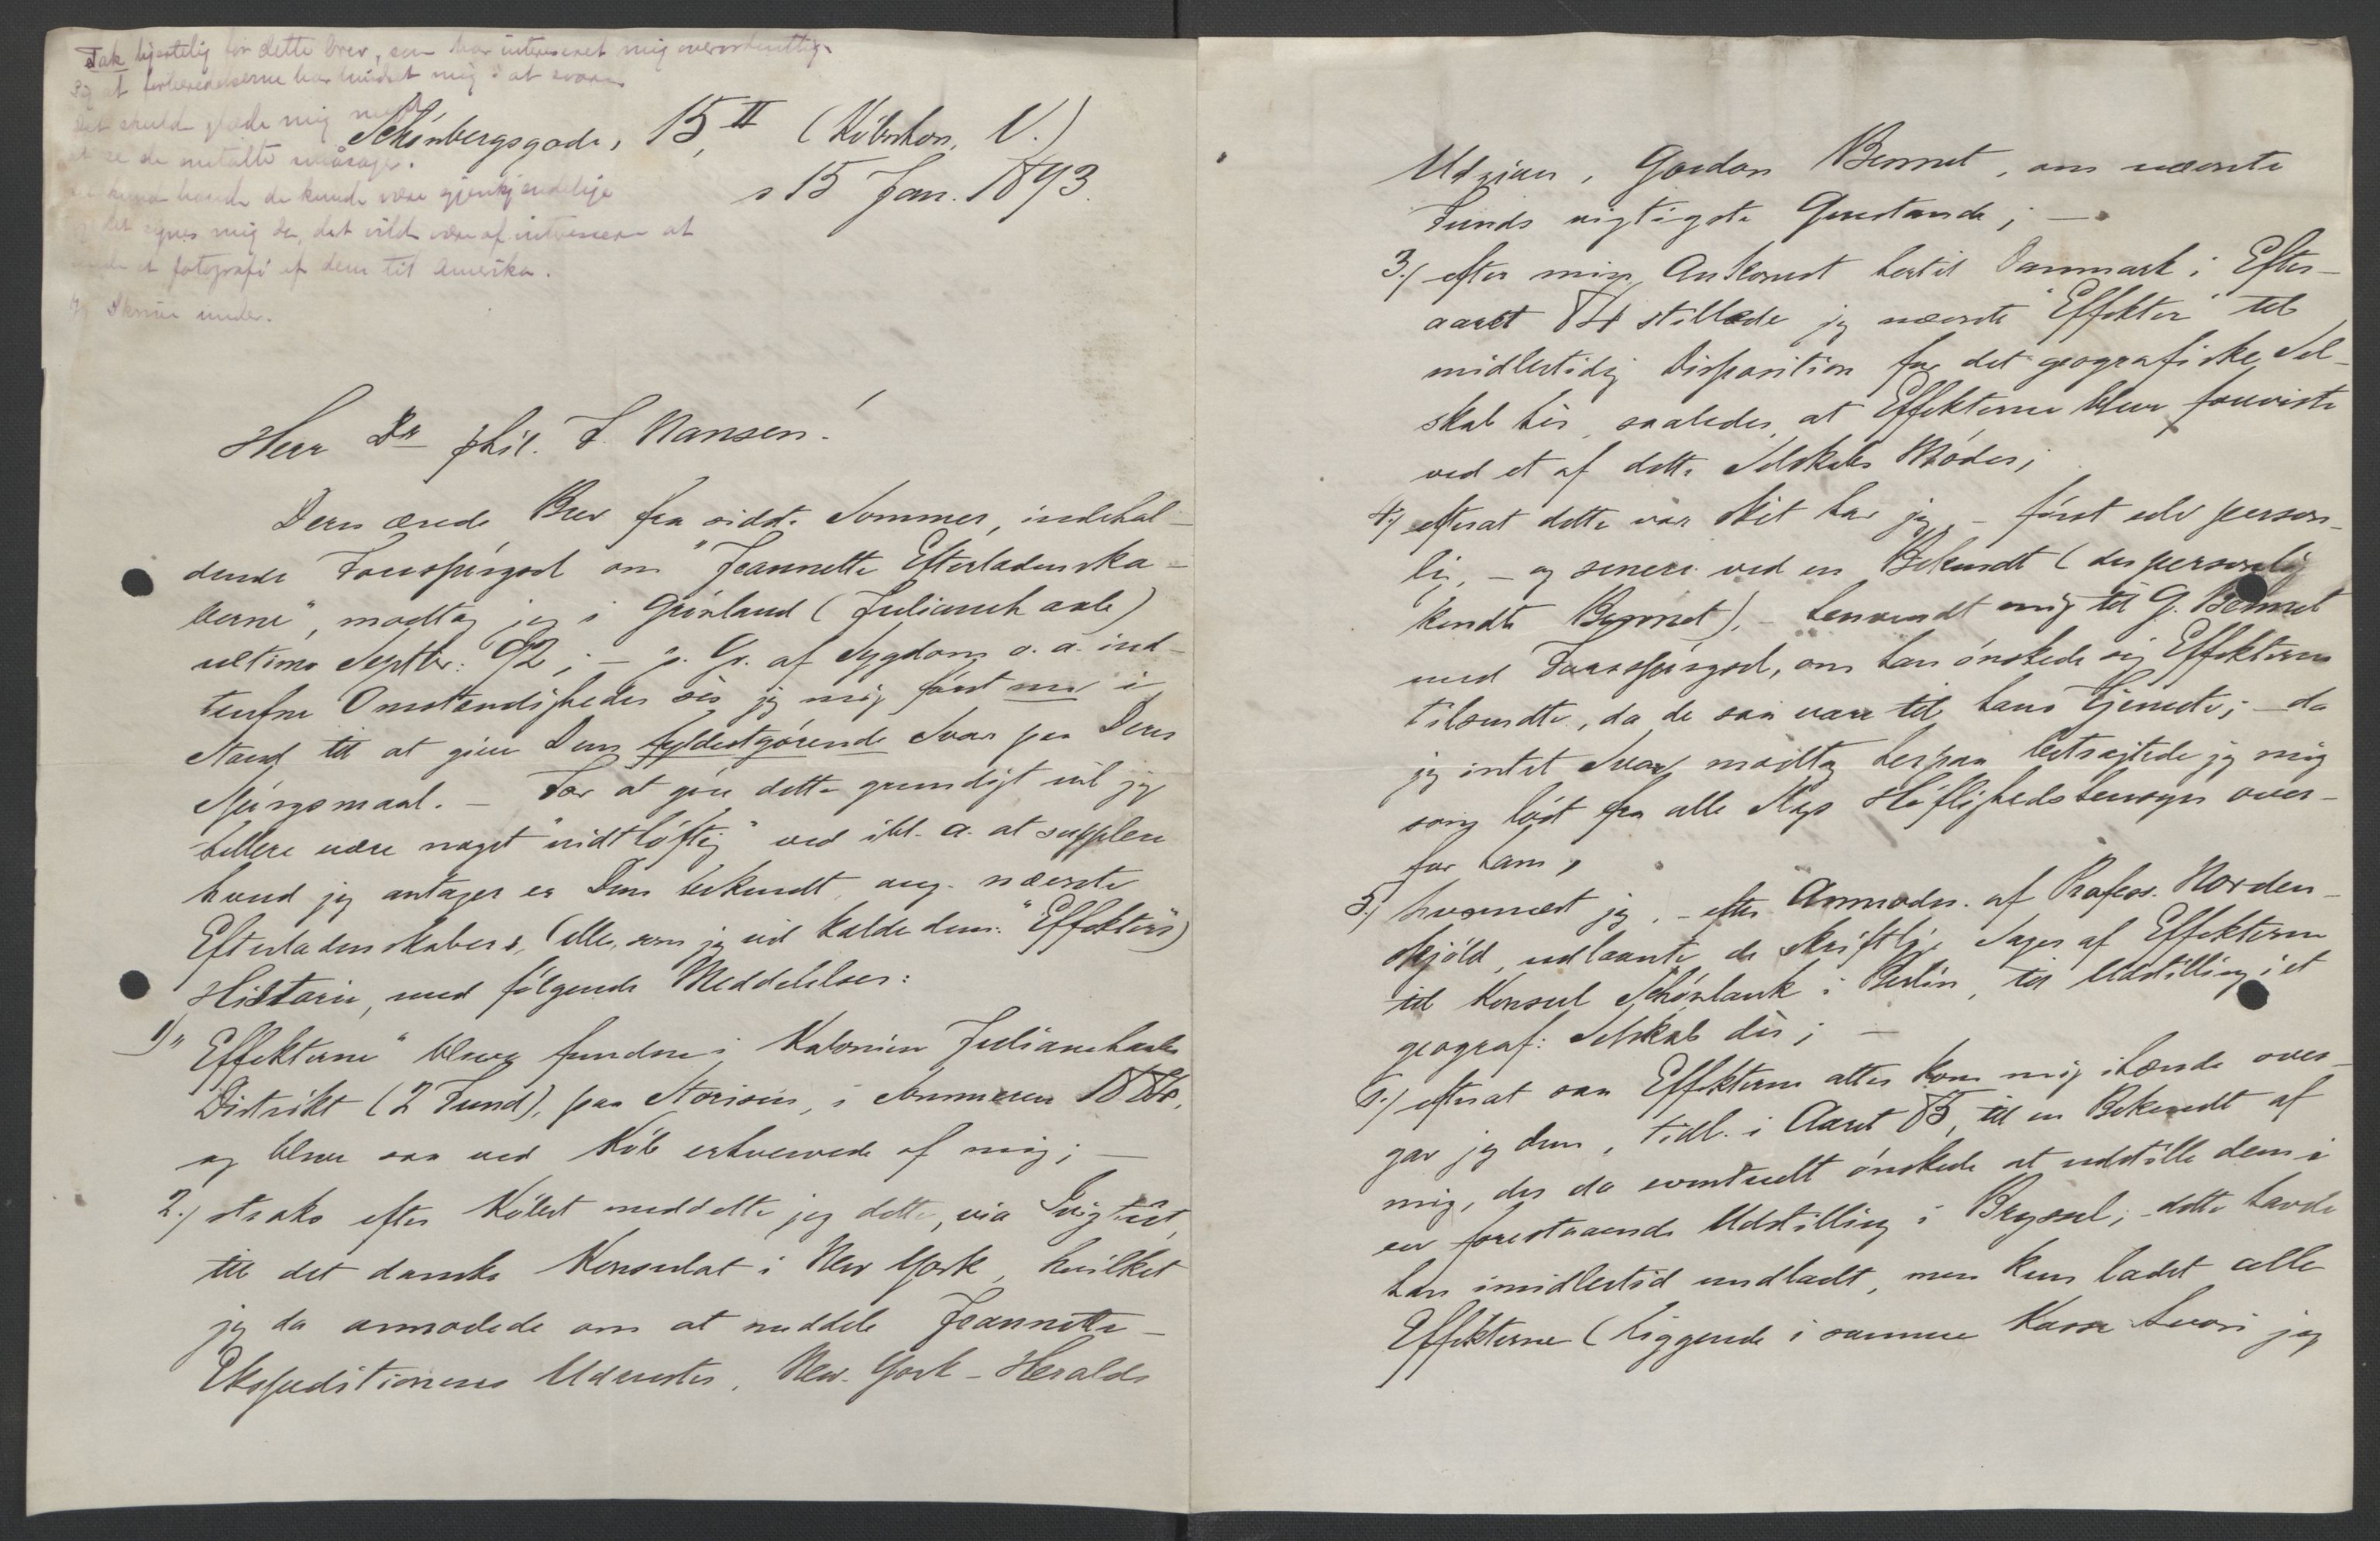 Tak hjertelig for dette brev, som har interesseret mig overordentlig.
at forberedelserne har hindret mig i at svare
skulde glæde mig meget
at se de omtalte småsager.
de kunde være gjenkjendelige
det synes mig da, det vilde være af interesse at
sende et fotografi af dem til Amerika.
Skrive under.
Schönbergsgade, 15, II (Købnhvn, V.)
d 15 Jan. 1893.
Herr Dr phil. F. Nansen!
Deres ærede Brev fra sidste Sommer, indehol-
dende Forespörgsel om "Jeannette Efterladenska-
berne", modtog jeg i Grönland (Julianehaab)
ultimo Septbr: 92; – p. Gr. af Sygdom o. a. ind-
trufne Omstændigheder sér jeg mig först nu i
Stand til at give Dem fyldestgörende Svar paa Deres
Spörgsmaal. – For at göre dette grundigt vil jeg
hellere være noget "vidtlöftig" ved ibl. a. at supplere
hvad jeg antager er Dem bekendt ang. nævnte
Efterladenskabers, (eller, som jeg vil kalde dem: "Effekters")
Historie, med fölgende Meddelelser:
1) "Effekterne" bleve fundne i Kolonien Julianehaabs
Distrikt (2 Fund), paa Storisen, i Sommeren 1884,
og bleve saa ved Köb erhvervede af mig; –
2.) straks efter Köbet meddelte jeg dette, via Ivigtût,
til det danske Konsulat i New York, hvilket
jeg da anmodede om at meddele Jeannette-
Ekspeditionens Udruster, New-York-Heralds
Udgiver, Gordon Bennet, om nævnte
Funds vigtigste Genstande; –
3.) efter min Ankomst hertil Danmark i Efter-
aaret 84 stillede jeg nævnte "Effekter" til
midlertidig Disposition for det geografiske Sel-
skab hér, saaledes, at Effekterne blev foreviste
ved et af dette Selskabs Möder;
4.) efterat dette var sket har jeg – först selv person-
lig, – og senere ved en Bekendt (der personlig
kendte Bennet), – henvendt mig til G. Bennet
med Forespörgsel, om han önskede sig Effekterne
tilsendte, da de saa vare til hans Tjeneste; – da
jeg intet Svar modtog herpaa betragtede jeg mig
som löst fra alle Slags Höflighedshensyn over-
for ham,
5.) hvornæst jeg, – efter Anmodn. af Profess. Norden-
skjöld, udlaante de skriftlige Sager af Effekterne
til Konsul Schönlank i Berlin, til Udstilling i et
geograf: Selskab dér; –
6.) efterat saa Effekterne atter kom mig ihænde over-
gav jeg dem, tidl. i Aaret 85, til en Bekendt af
mig, der da eventuelt önskede at udstille dem i
en forestaaende Udstilling i Bryssel; – dette havde
han imidlertid undladt, men kun ladet alle
Effekterne (liggende i samme Kasse hvori jeg